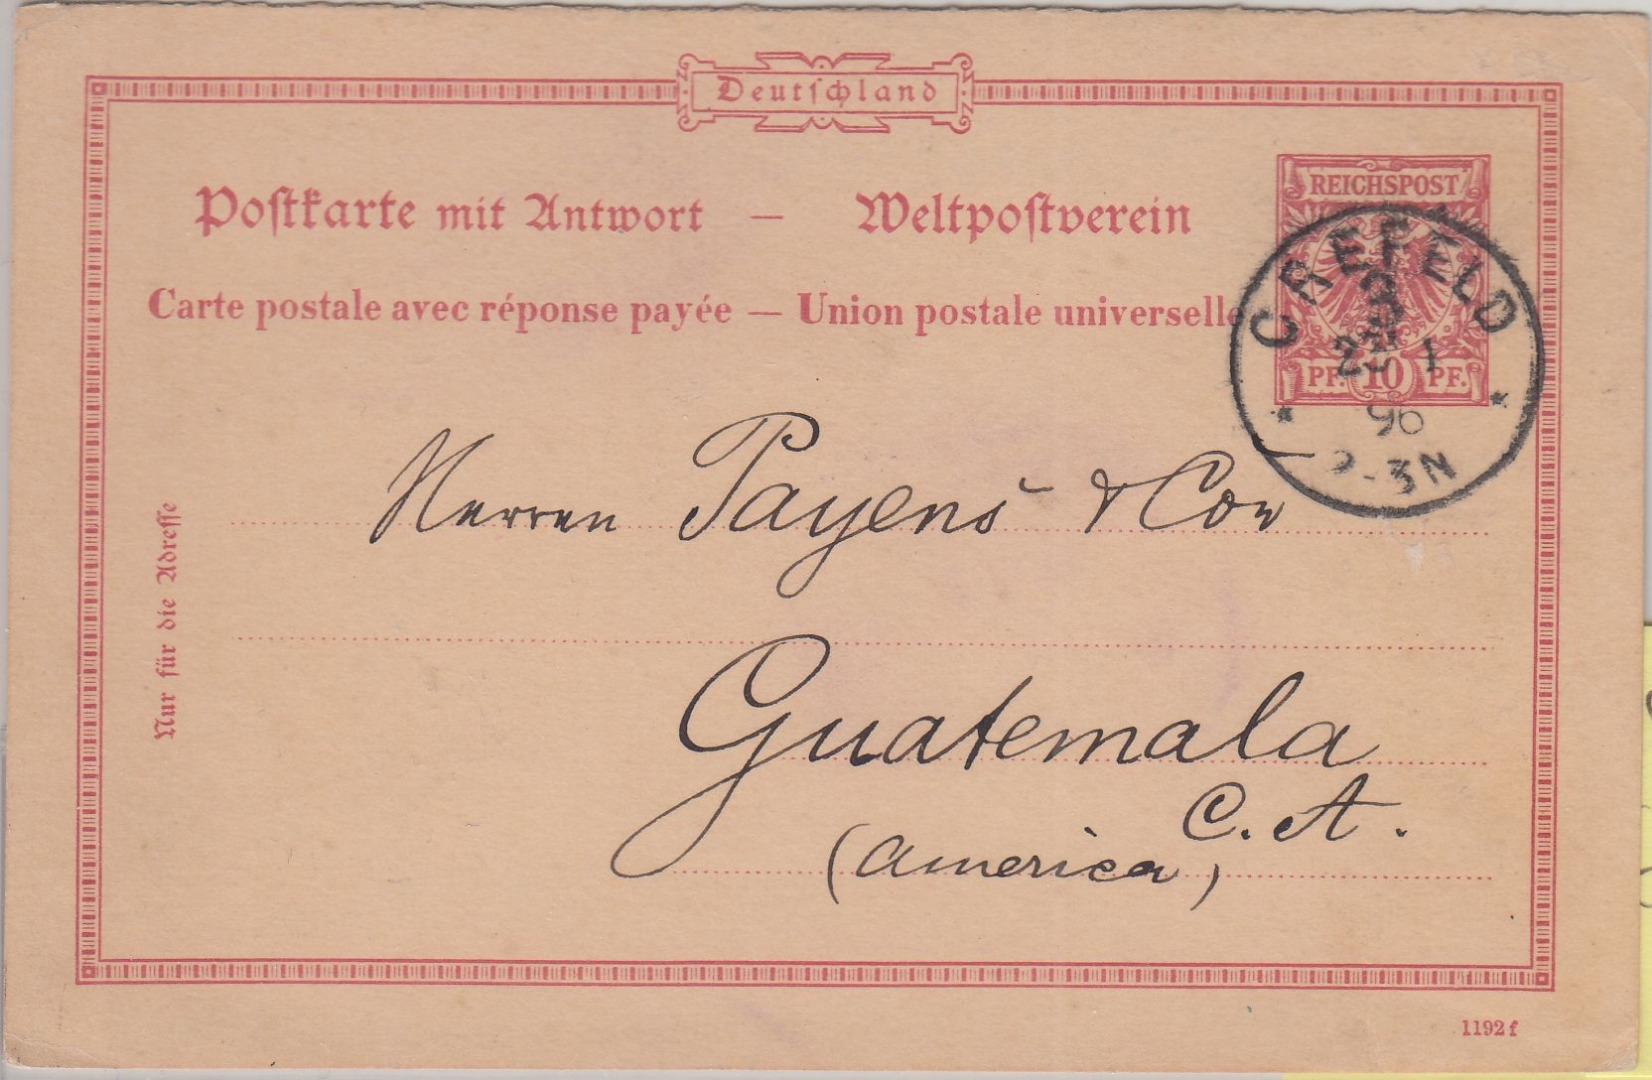 Deutschland
Postkarte mit Antwort — Weltpostverein
Carte postale avec réponse payée — Union postale universelle
REICHSPOST
PF. 10 PF.
CREFELD
3
23 1
96
2-3N
Nur für die Adresse
Herren Payens & Co
Guatemala
C. A.
(America)
1192 f